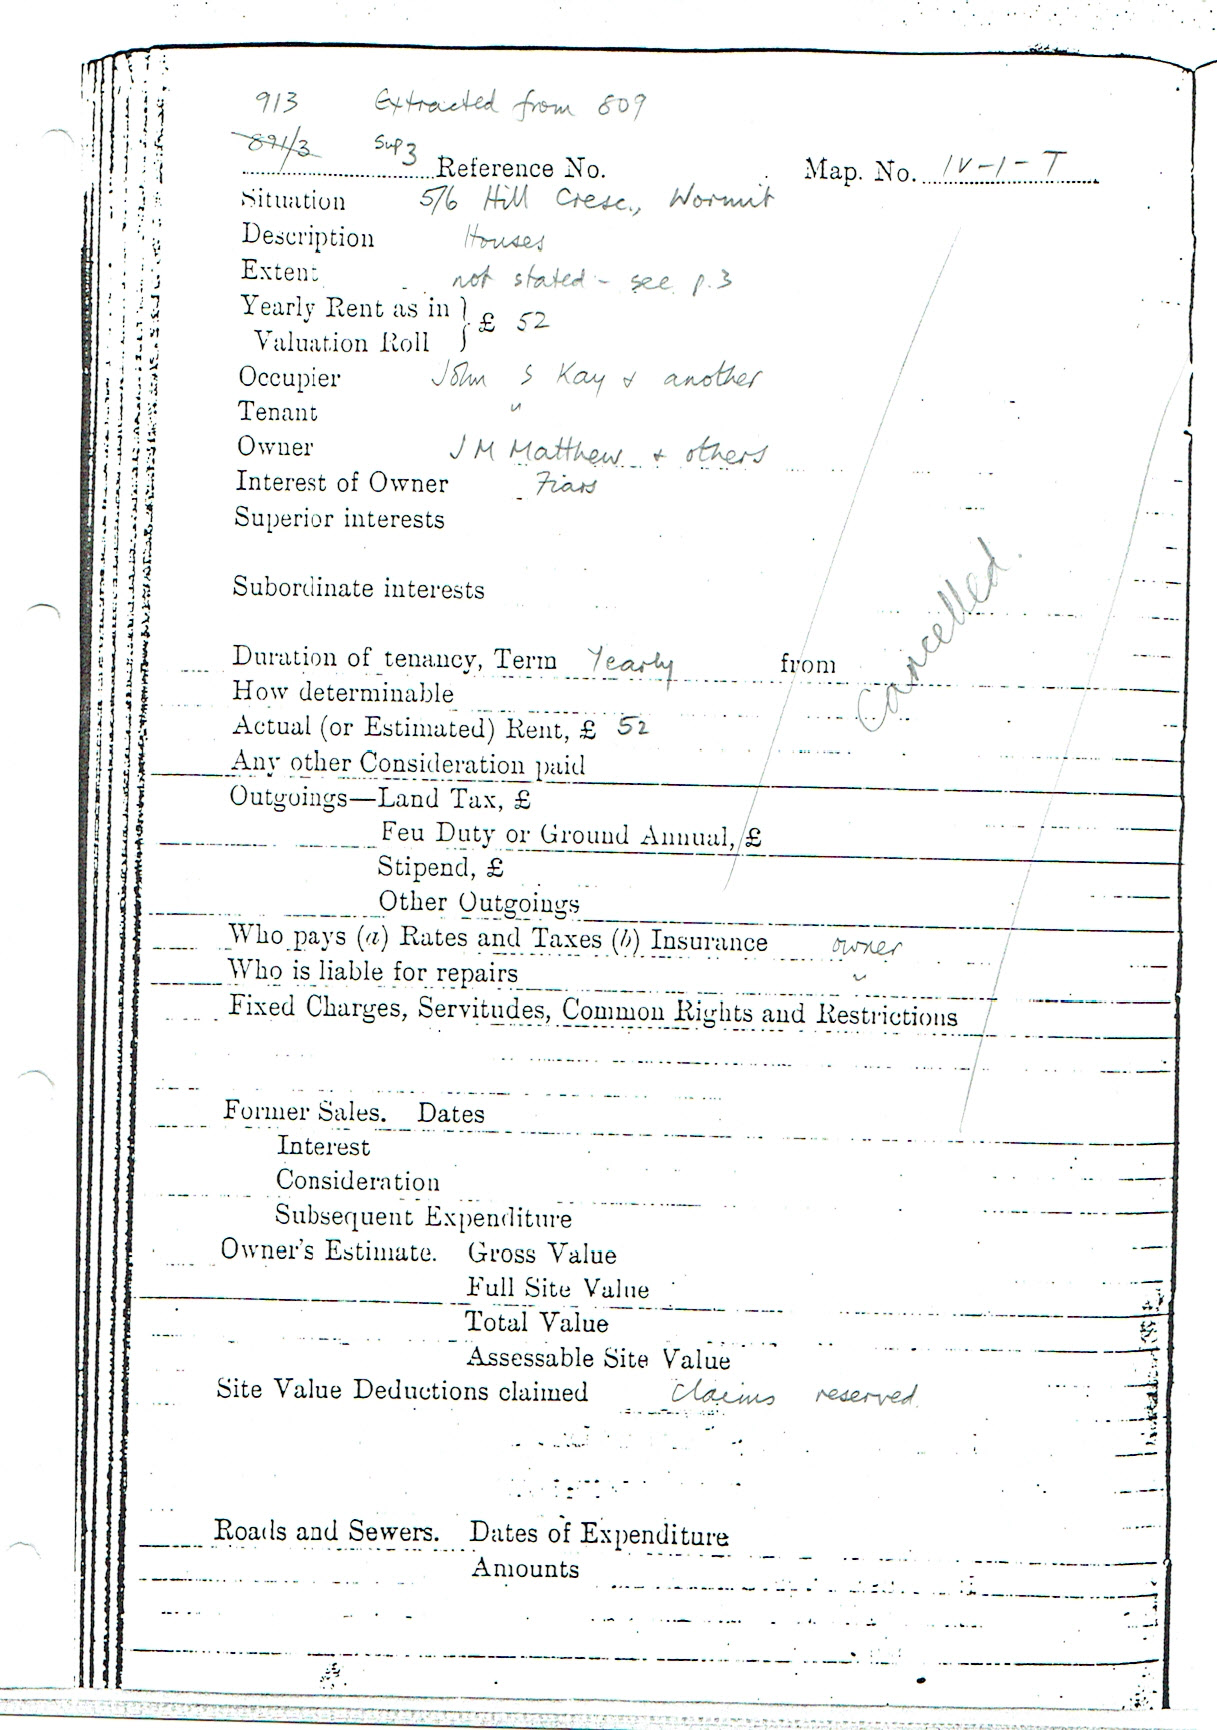 913 Extracted from 809
891/3 Sup 3 Reference No. Map. No. IV-1-T
Situation 5/6 Hill Cresc., Wormit
Description Houses
Extent not stated - see p.3
Yearly Rent as in } £ 52
Valuation Roll
Occupier John S Kay & another
Tenant "
Owner J M Matthew & others
Interest of Owner Fiars
Superior interests
Subordinate interests
Cancelled.
Duration of tenancy, Term Yearly from
How determinable
Actual (or Estimated) Rent, £ 52
Any other Consideration paid
Outgoings—Land Tax, £
Feu Duty or Ground Annual, £
Stipend, £
Other Outgoings
Who pays (a) Rates and Taxes (b) Insurance owner
Who is liable for repairs "
Fixed Charges, Servitudes, Common Rights and Restrictions
Former Sales. Dates
Interest
Consideration
Subsequent Expenditure
Owner's Estimate. Gross Value
Full Site Value
Total Value
Assessable Site Value
Site Value Deductions claimed Claims reserved
Roads and Sewers. Dates of Expenditure
Amounts